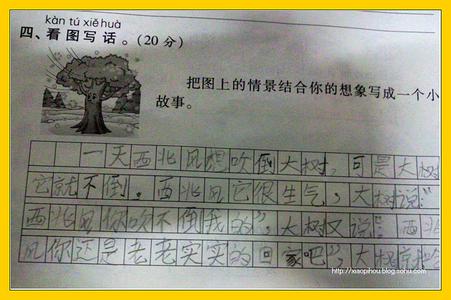 kàn tú xiě huà
四、看图写话。(20分)
把图上的情景结合你的想象写成一个小
故事。
一天西北风想吹倒大树，可是大树
它就不倒。西北风它很生气，大树说：“
西北风你吹不倒我的”，大树又说：“西北
风你还是老老实实的回家吧”，大树就
http://xiaopihou.blog.sohu.com